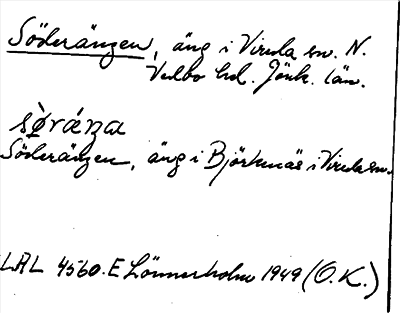 Söderängen, äng i Vireda sn. N.
Vedbo hd. Jönk. län.
sø̀ráŋa
Söderängen, äng i Björknäs i Vireda sn.
LAL 4560. E Lönnerholm 1949 (O.K.)